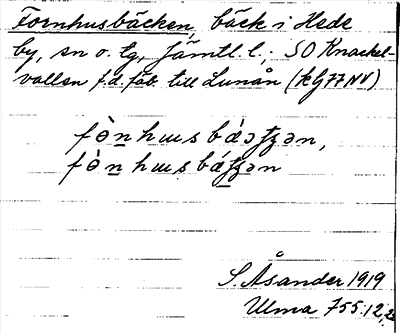 Fornhusbäcken, bäck i Hede
by, sn o. tg, Jämtl. l.; SO Knackel-
vallen f.d. fäb. till Lunån (kG77NV)
fὸn̲hɯsbάəʈʂən,
fὸn̲hɯsbάʈʂən
S. Åsander 1919
Ulma 755:12,